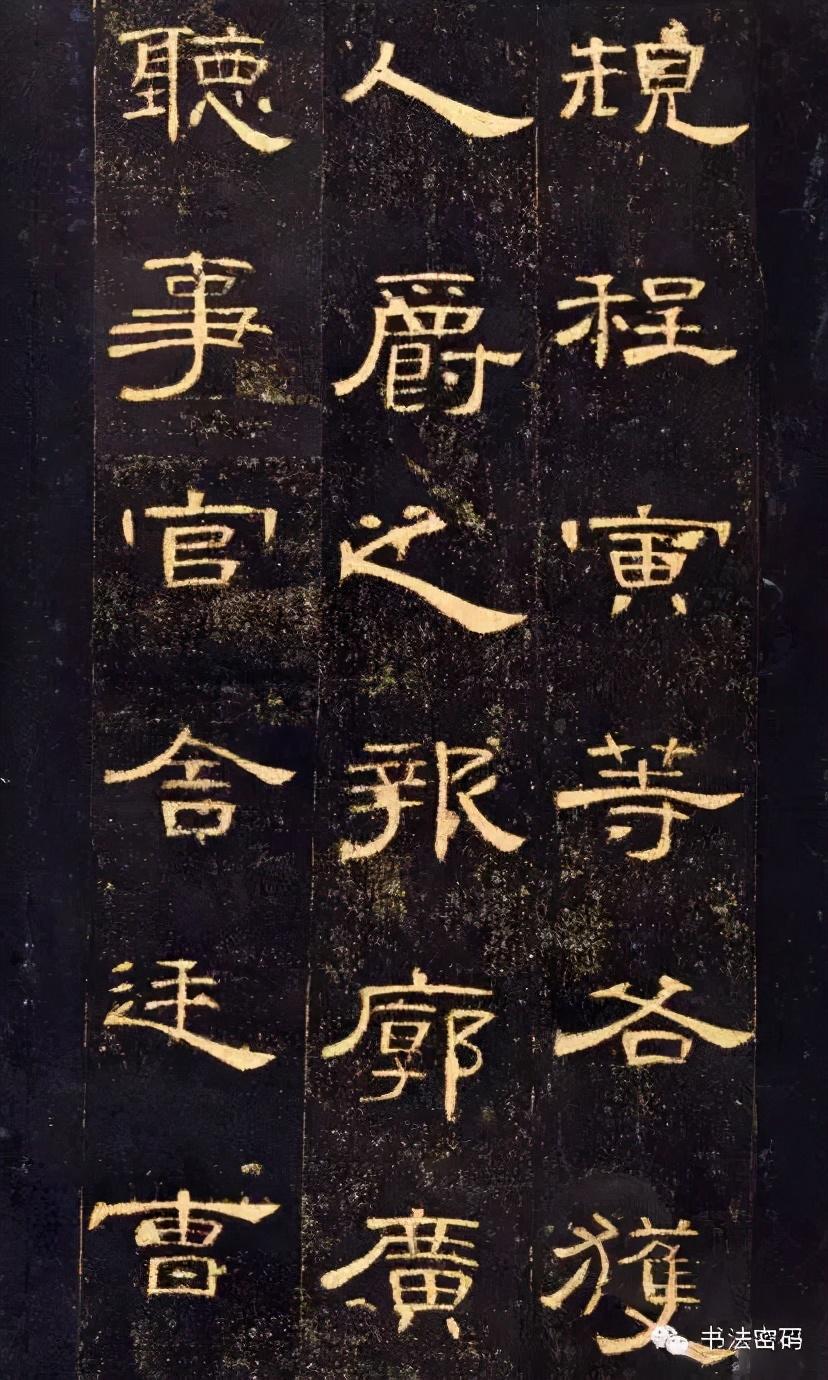 規程寅等各獲
人爵之報廓廣
聽事官舍廷曹
书法密码